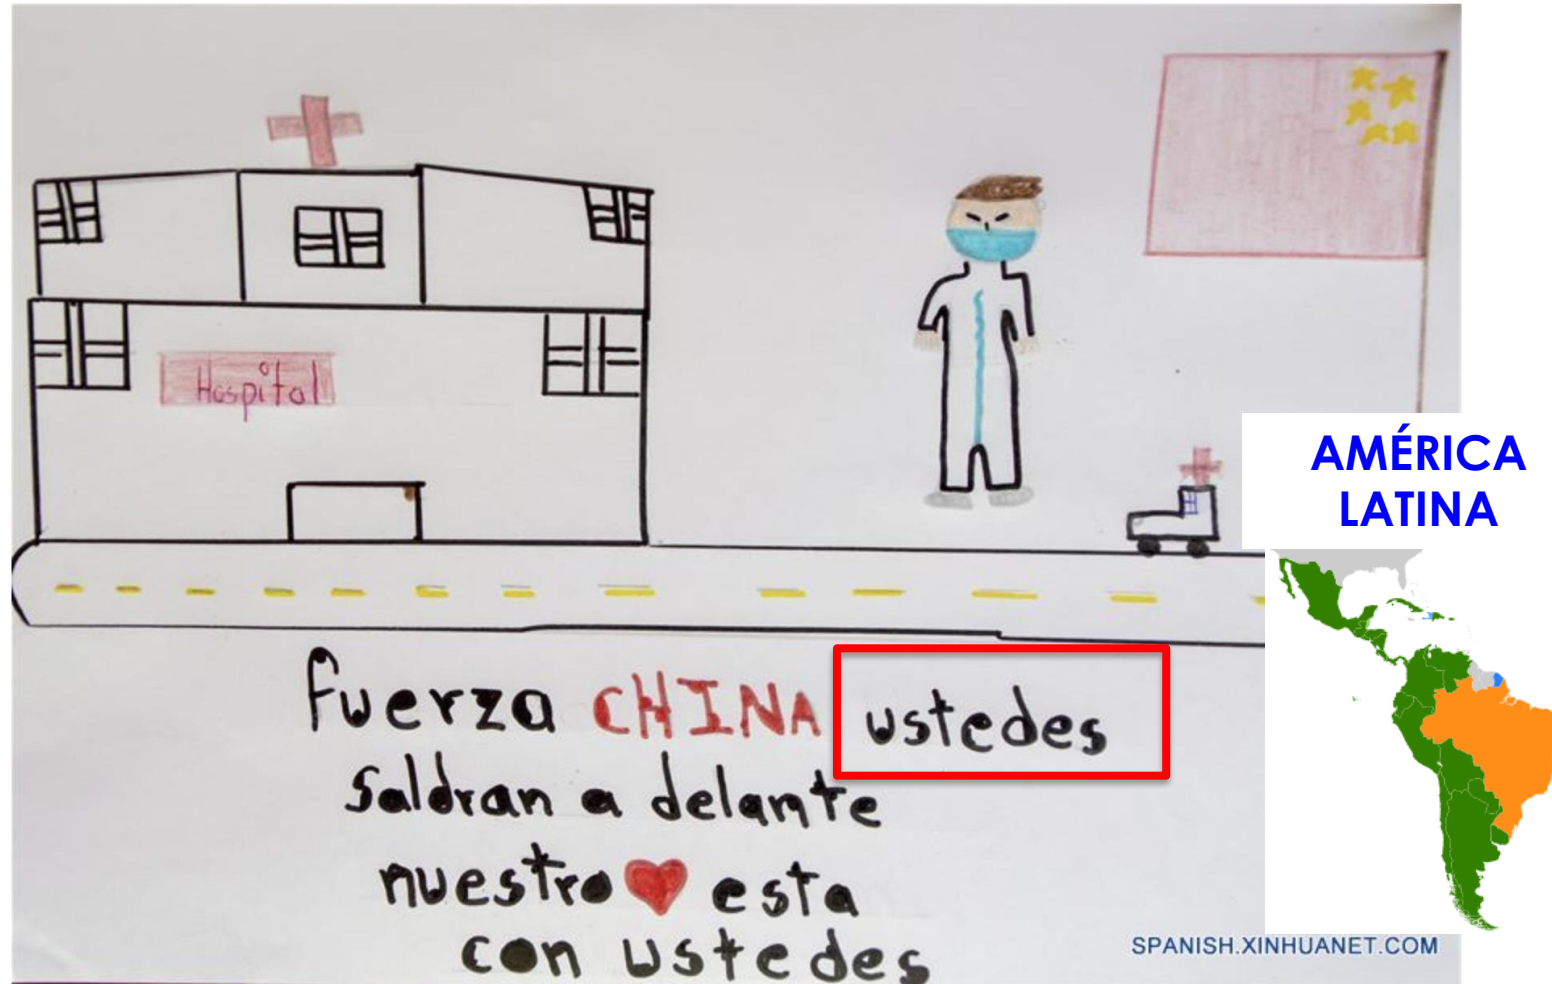 Hospital
AMÉRICA
LATINA
fuerza CHINA ustedes
saldran a delante
nuestro esta
con ustedes
SPANISH.XINHUANET.COM